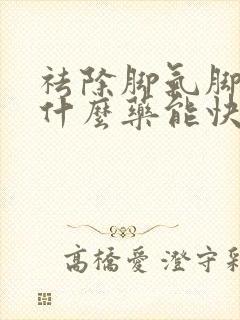 祛除脚氣脚
什麼藥能快
高橋愛 澄守彩